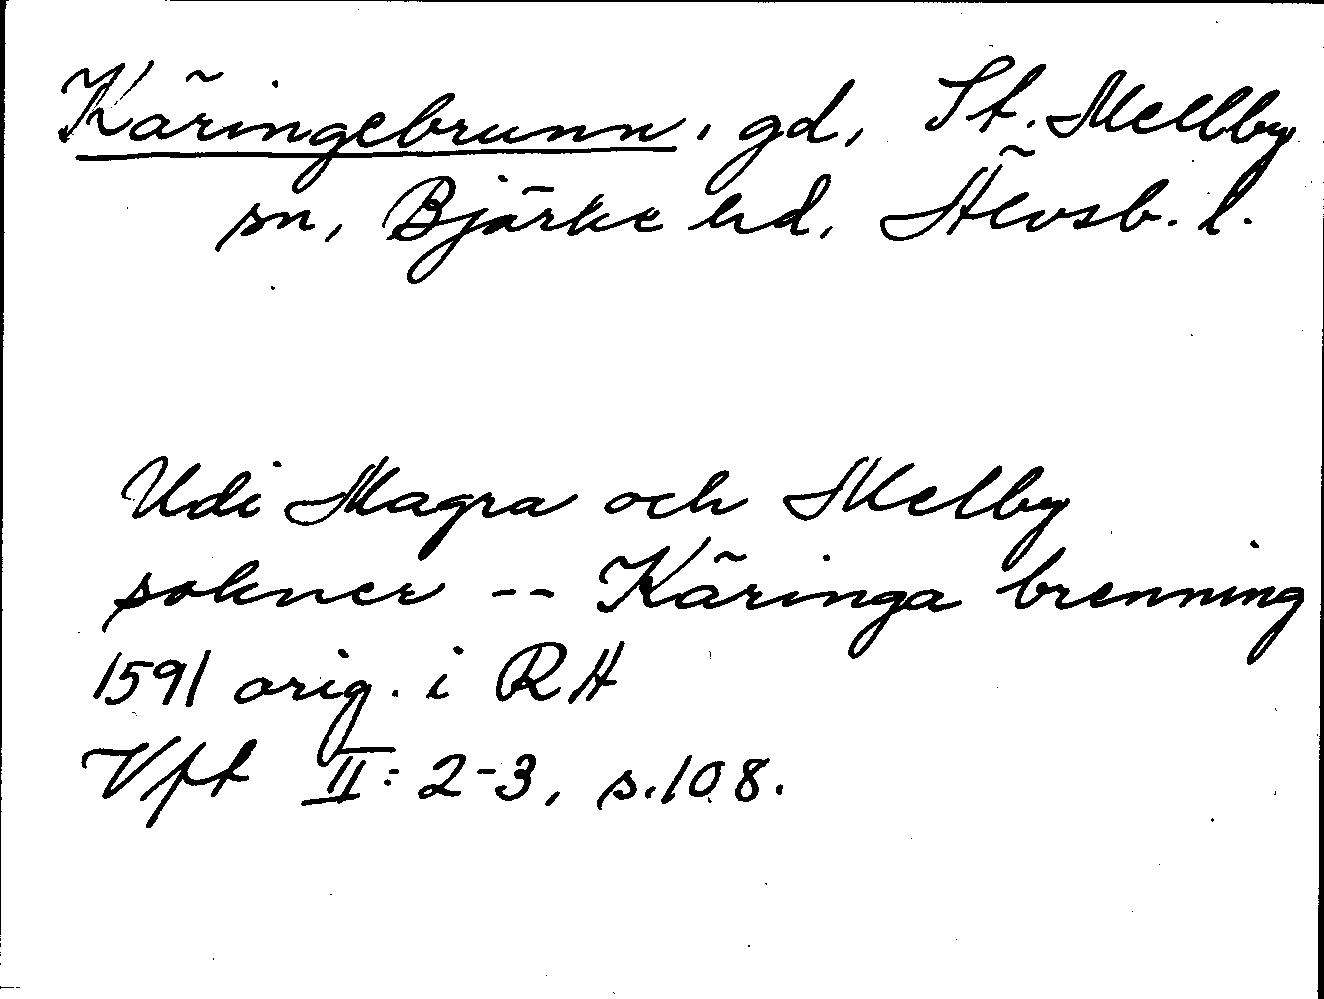 Käringebrunn, gd, St. Mellby
sn, Bjärke hd, Älvsb. l.
Udi Magra och Melby
sokner -- Käringa brenning
1591 orig. i RA
Vft II: 2-3, s. 108.